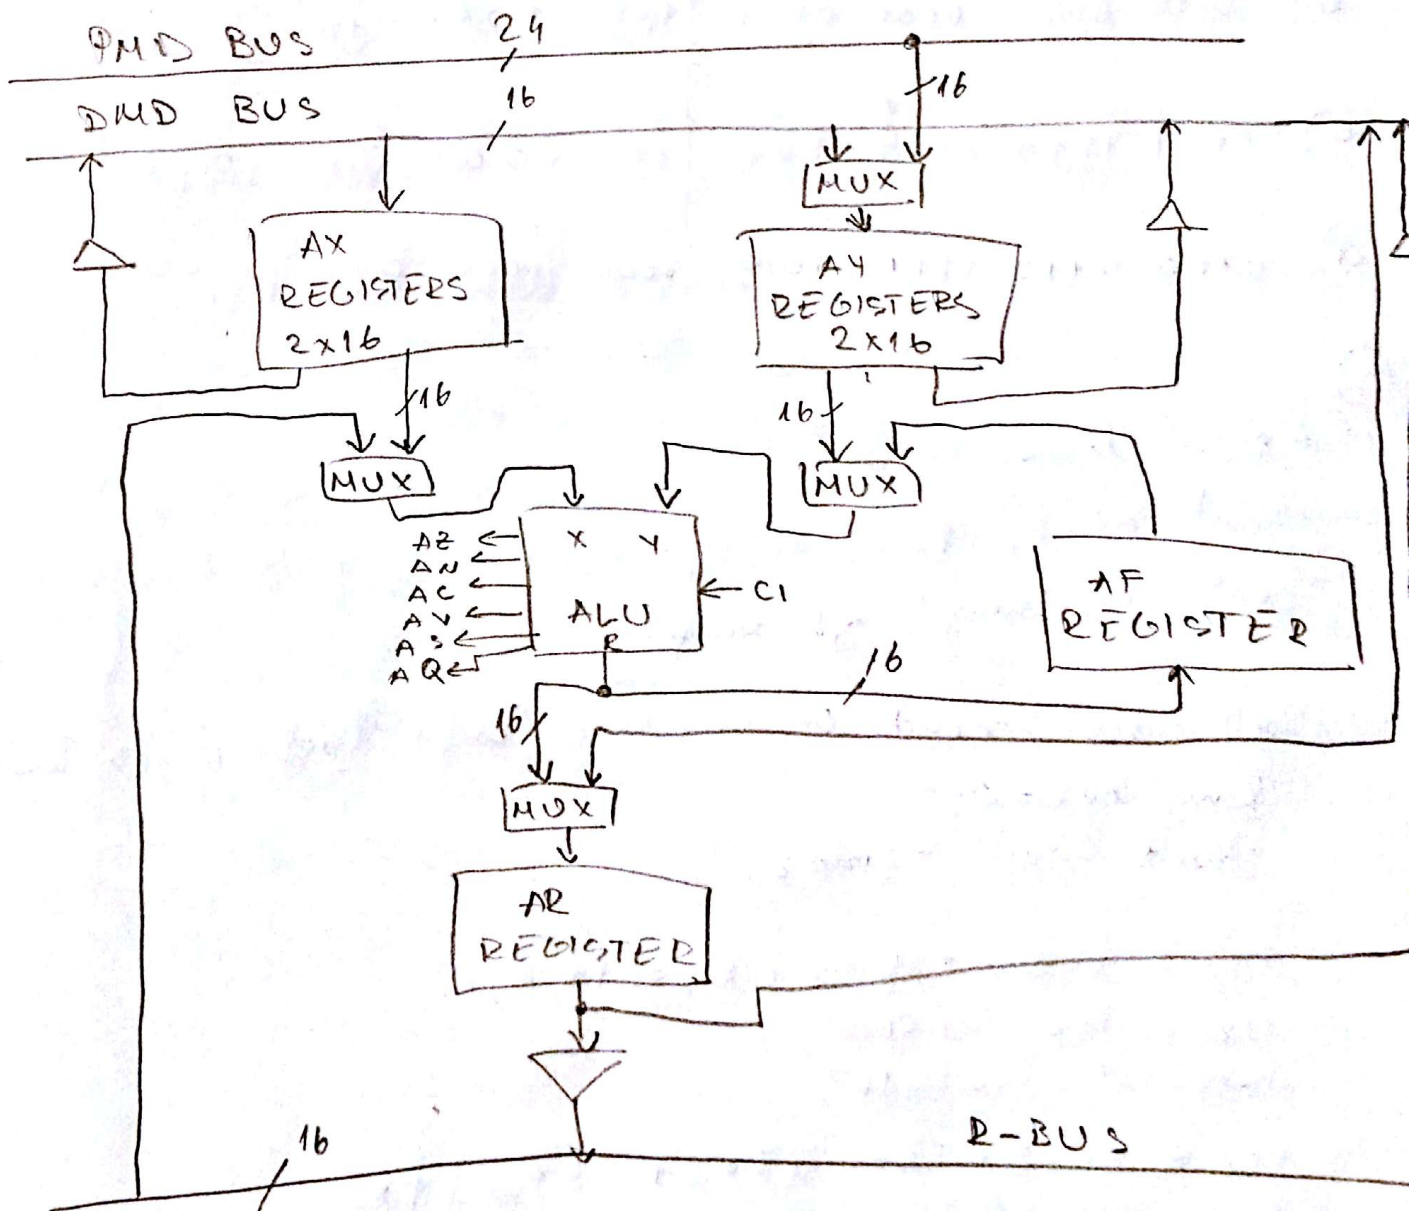 PMD BUS 24
DMD BUS 16
16
MUX
AX
REGISTERS
2x16
AY
REGISTERS
2x16
16
16
MUX
MUX
X Y
ALU
R
AZ
AN
AC
AV
AS
AQ
CI
AF
REGISTER
16
16
MUX
AR
REGISTER
16
R-BUS